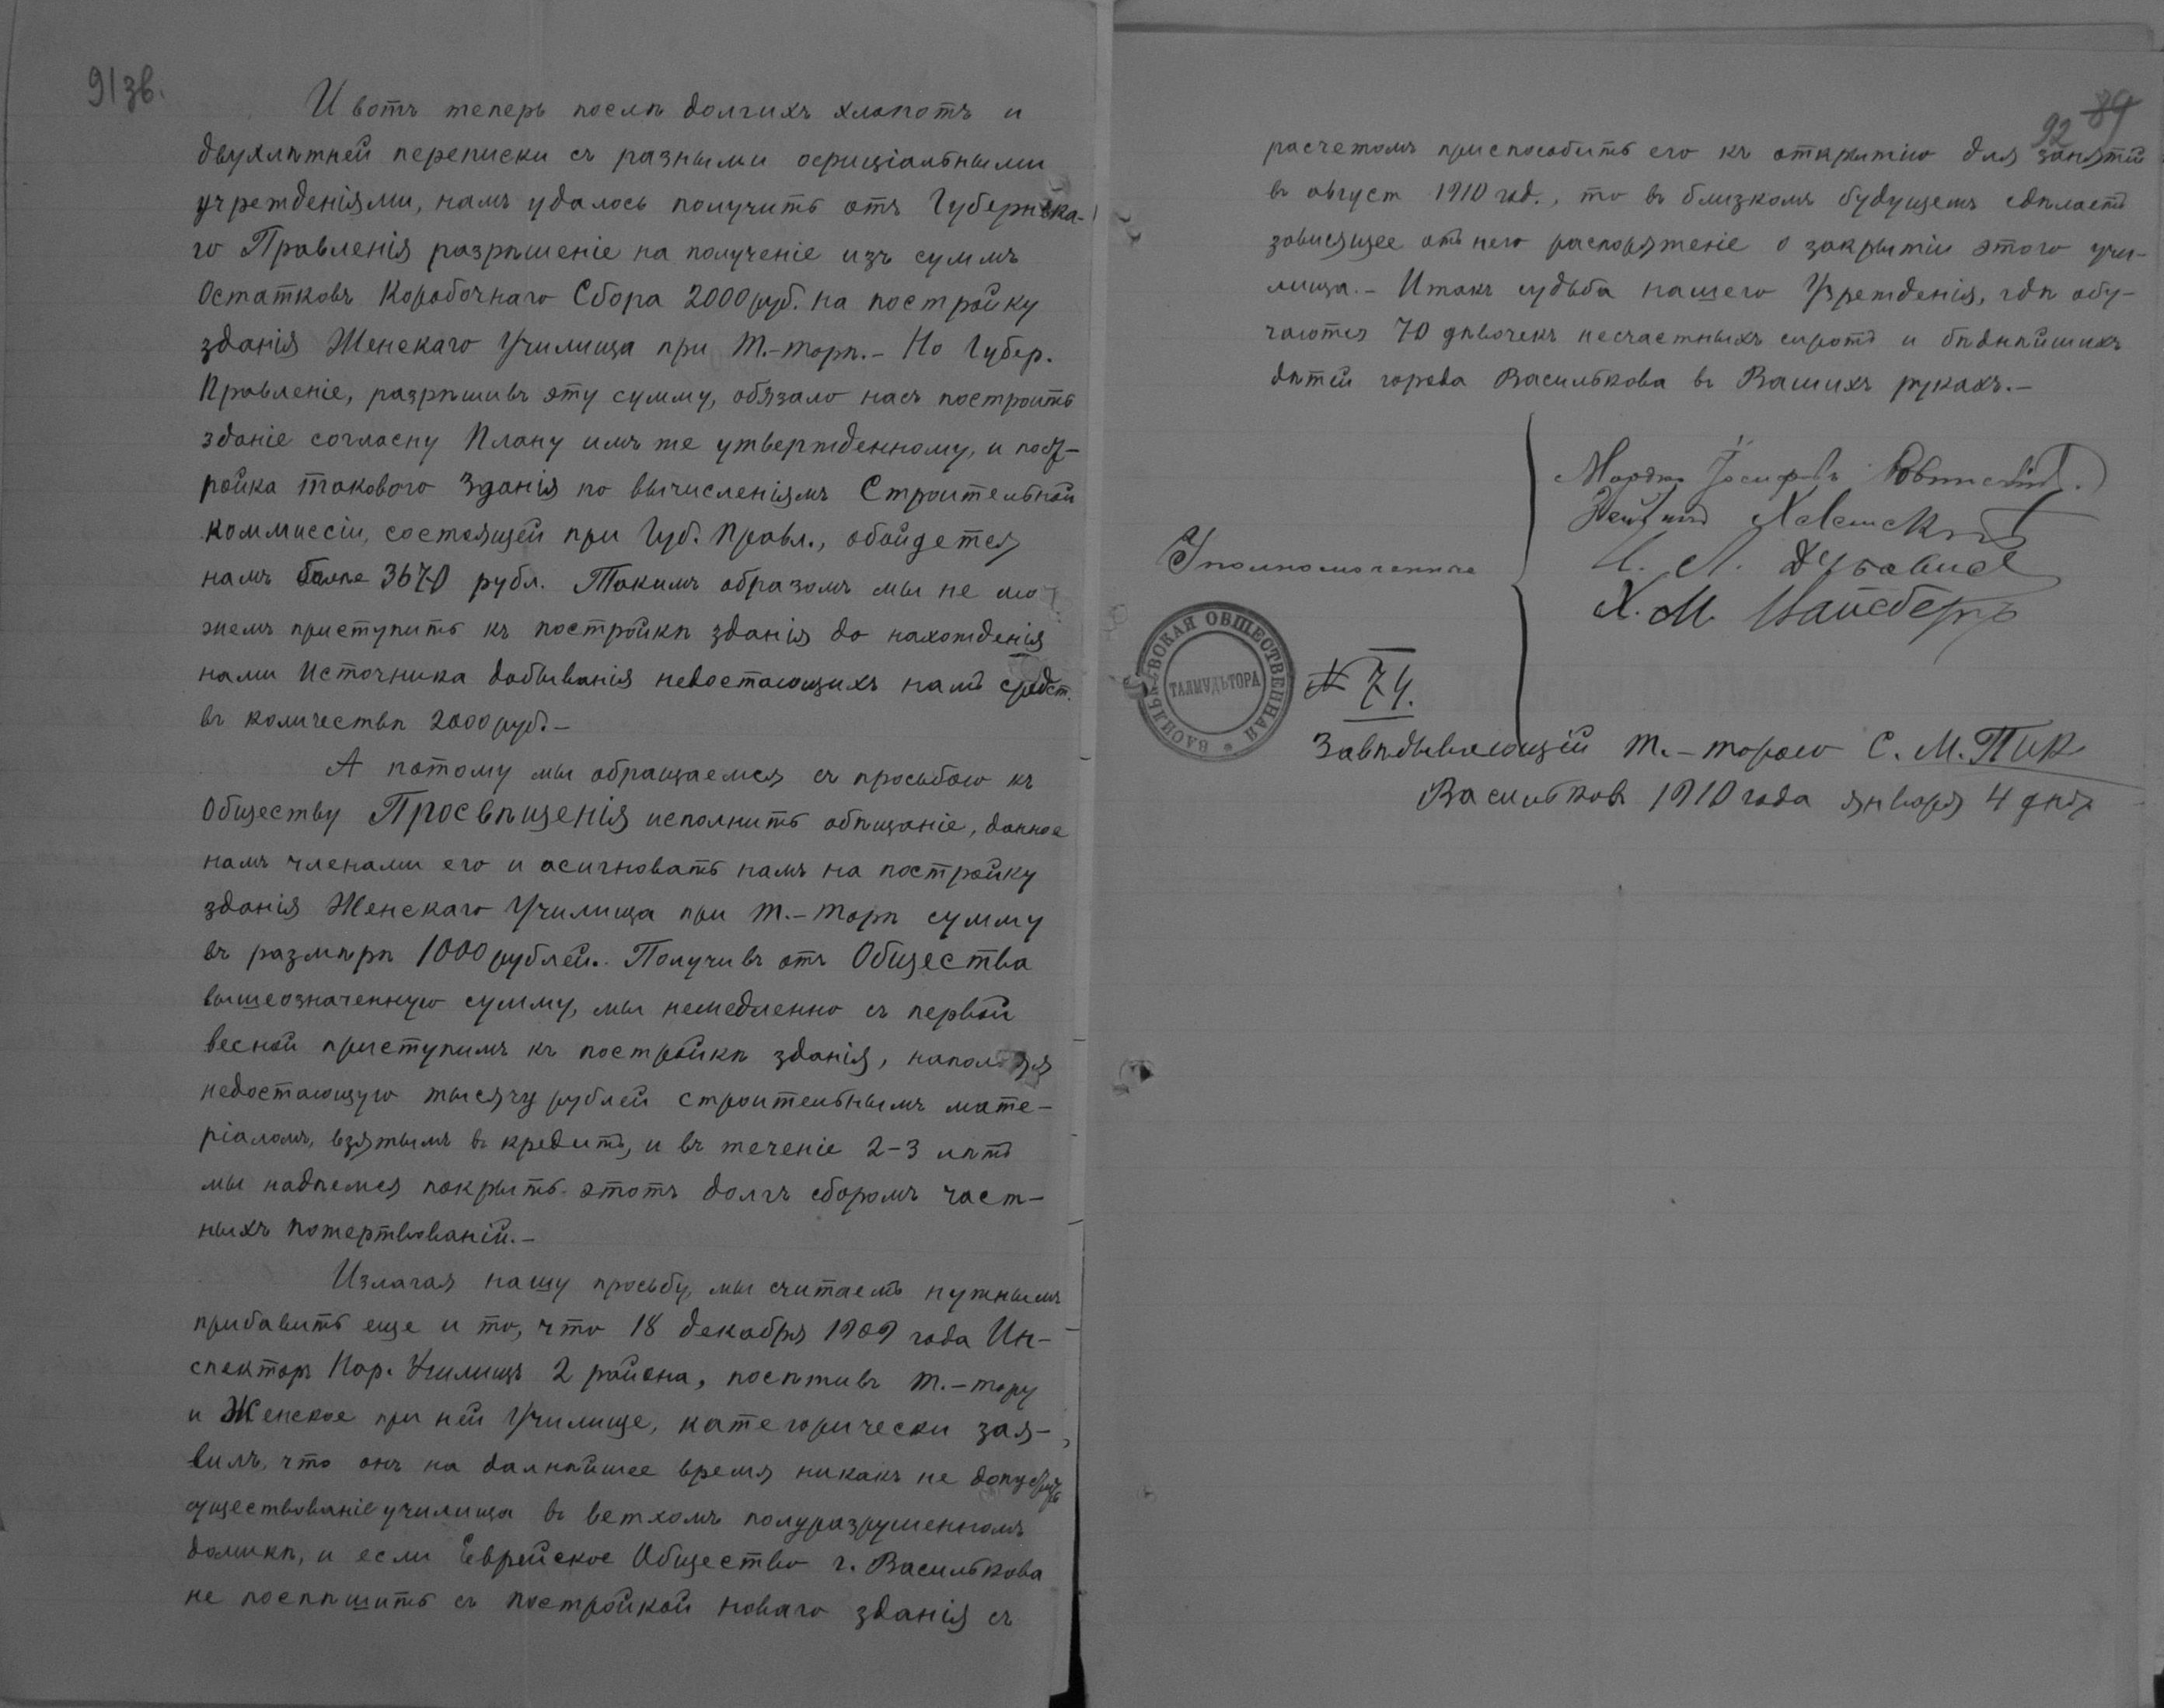 91зв.
И вотъ теперь послѣ долгихъ хлопотъ и
двухлѣтней переписки съ разными оффиціальными
учрежденіями, намъ удалось получить отъ Губернска-
го Правленія разрѣшеніе на полученіе изъ суммъ
Остатковъ Коробочнаго Сбора 2000 руб. на постройку
зданія Женскаго Училища при Т.-торѣ.- Но Губер.
Правленіе, разрѣшивъ эту сумму, обязало насъ построить
зданіе согласну Плану имъ же утвержденному, и пост-
ройка таковаго Зданія по вычисленіямъ Строительной
коммиссіи, состоящей при Губ. Правл., обойдется
намъ болѣе 3670 рубл. Такимъ образомъ мы не мо-
жемъ приступить къ постройкѣ зданія до нахожденія
нами Источника добыванія недостающихъ намъ средст.
въ количествѣ 2000 руб.-
А потому мы обращаемся съ просьбою къ
Обществу Просвѣщенія исполнить обѣщаніе, данное
намъ членами его и асигновать намъ на постройку
зданія Женскаго Училища при Т.-торѣ сумму
въ размѣрѣ 1000 рублей. Получивъ отъ Общества
вышеозначенную сумму, мы немедленно съ первой
весной приступимъ къ постройкѣ зданія,
недостающую тысячу рублей строительнымъ мате-
ріаломъ, взятымъ въ кредитъ, и въ теченіе 2-3 лѣтъ
мы надѣемся покрыть этотъ долгъ сборомъ част-
ныхъ пожертвованій.-
Излагая нашу просьбу, мы считаемъ нужнымъ
прибавить еще и то, что 18 декабря 1909 года Ин-
спекторъ Нар. Училищъ 2 района, посѣтивъ Т.-тору
и Женское при ней Училище, категорически зая-
вилъ, что онъ на далнѣйшее время никакъ не допуститъ
существованіе училища въ ветхомъ полуразрушенномъ
домикѣ, и если Еврейское Общество г. Василькова
не поспѣшитъ съ постройкой новаго зданія съ
92 89
расчетомъ приспособить его къ открытію для занятій
въ август 1910 год., то въ близкомъ будущемъ сдѣлаетъ
зависящее отъ него распоряженіе о закрытіи этого учи-
лища.- Итакъ судьба нашего Учрежденія, гдѣ обу-
чаются 70 дѣвочекъ несчастныхъ сиротъ и бѣднѣйшихъ
дѣтей города Василькова въ Вашихъ рукахъ.-
Мордко Іосифовъ
Уполномоченные
Х. М. Вайсбергъ
ВАСИЛЬКОВСКАЯ ОБЩЕСТВЕННАЯ
ТАЛМУДЪТОРА
№ 74.
Завѣдывающій Т.-торою С. М. Пик
Васильков 1910 года января 4 дня